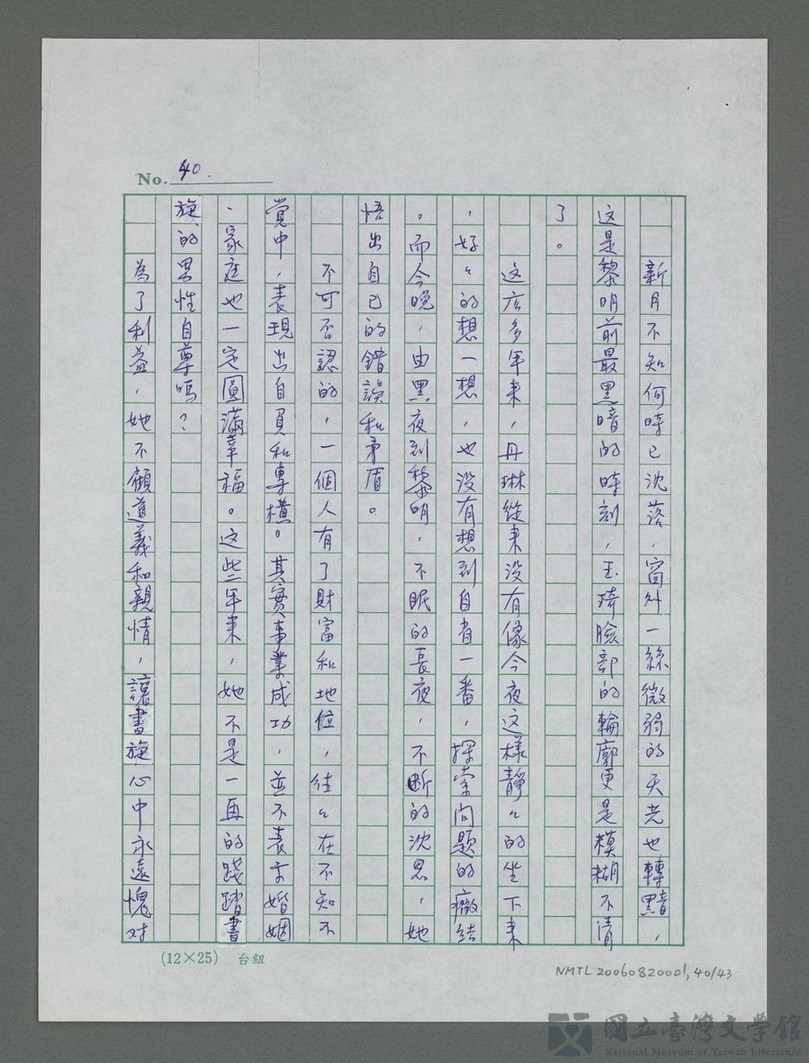 No. 40.
新月不知何時已沈落，窗外一絲微弱的天光也轉黯，
这是黎明前最黑暗的時刻，玉琦臉部的輪廓更是模糊不清
了。
这庅多年来，丹琳從来没有像今夜这樣靜々的坐下来
，好々的想一想，也没有想到自省一番，探索问題的癥結
。而今晚，由黑夜到黎明，不眠的長夜，不断的沈思，她
悟出自已的錯誤和矛盾。
不可否認的，一個人有了財富和地位，往々在不知不
覚中，表現出自負和專橫。其實事業成功，並不表示婚姻
、家庭也一定圓滿幸福。这些年来，她不是一再的践踏書
旋的男性自尊嗎？
為了利益，她不顧道義和親情，讓書旋心中永遠愧对
(12×25) 台組
NMTL20060820001, 40/43
國立臺灣文學館
National Museum of Taiwan Literature